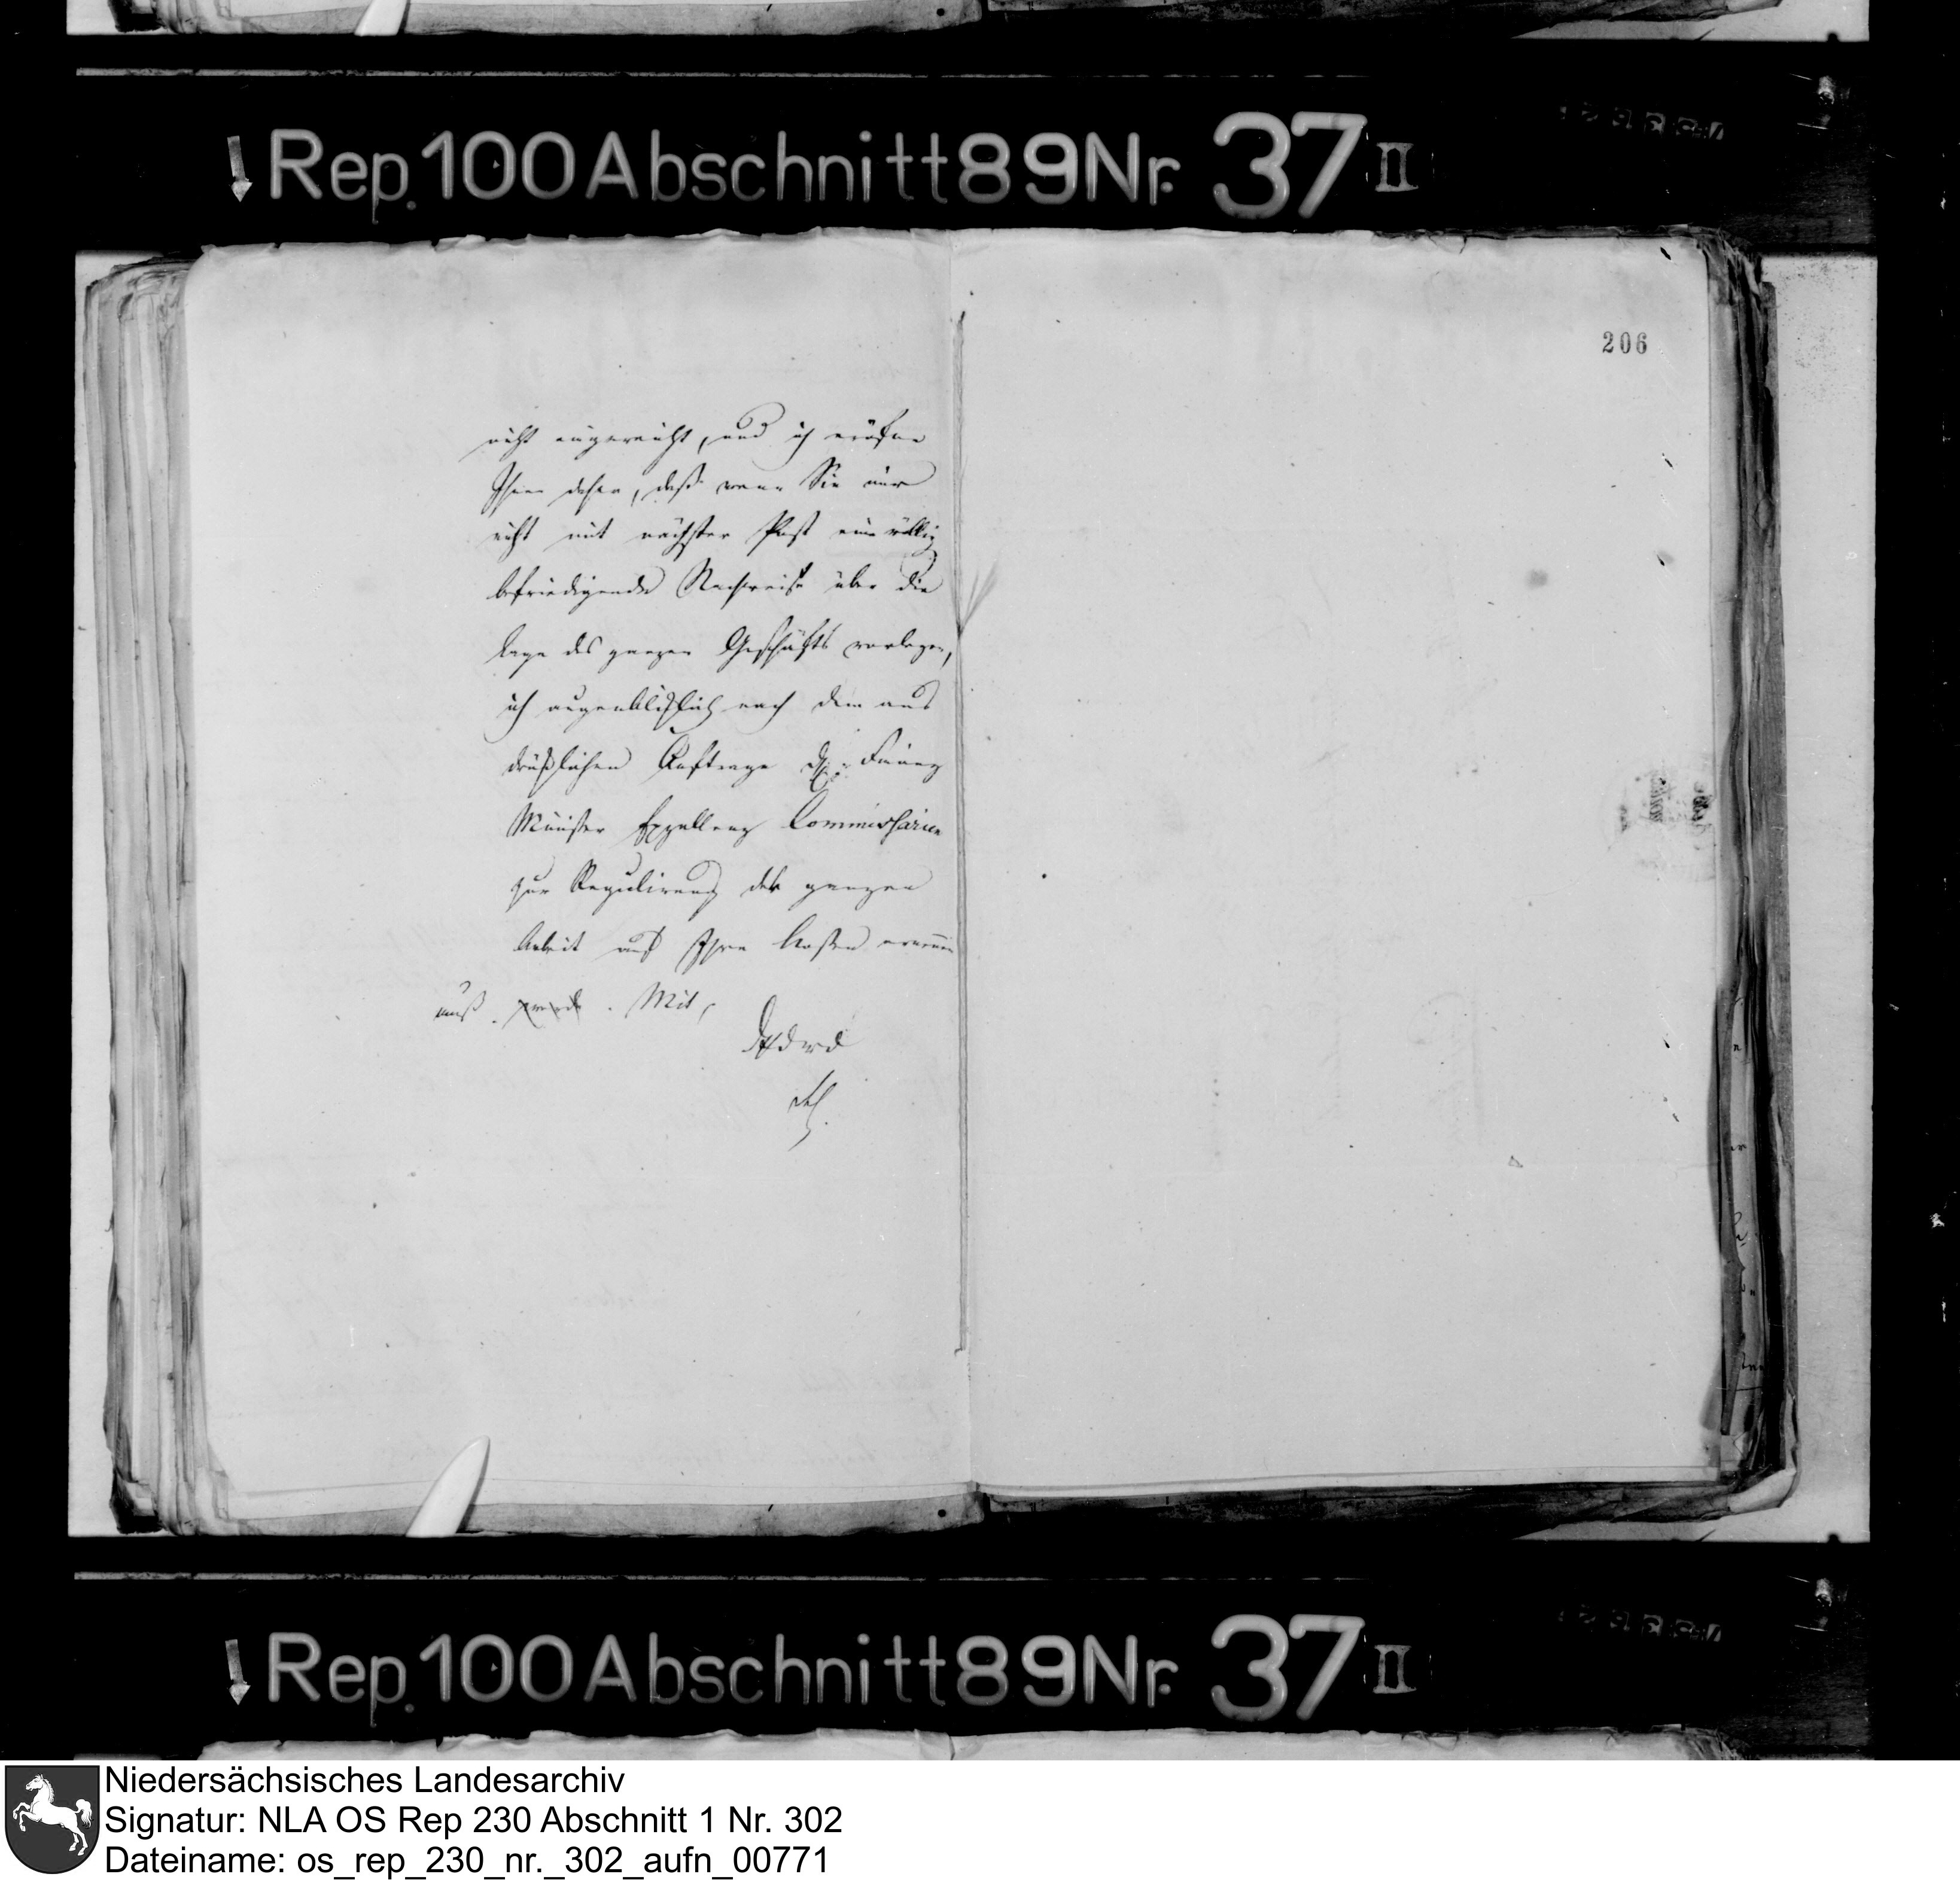 Rep. 100 Abschnitt 89 Nr. 37 II
206
nicht eingereicht, und ich eröfne
Ihnen daher, daß wenn Sie mir
nicht mit nächster Post eine völlig
befriedigende Nachweise über die
Lage des ganzen Geschäfts vorlegen,
ich augenblicklich nach dem aus
drücklichen Auftrage Finanz
Minister Exzellenz Commissarien
zur Regulirung der ganzen
Arbeit auf Ihre Kosten ernennen
muß. werde. Mit
Rep. 100 Abschnitt 89 Nr. 37 II
Niedersächsisches Landesarchiv
Signatur: NLA OS Rep 230 Abschnitt 1 Nr. 302
Dateiname: os_rep_230_nr._302_aufn_00771